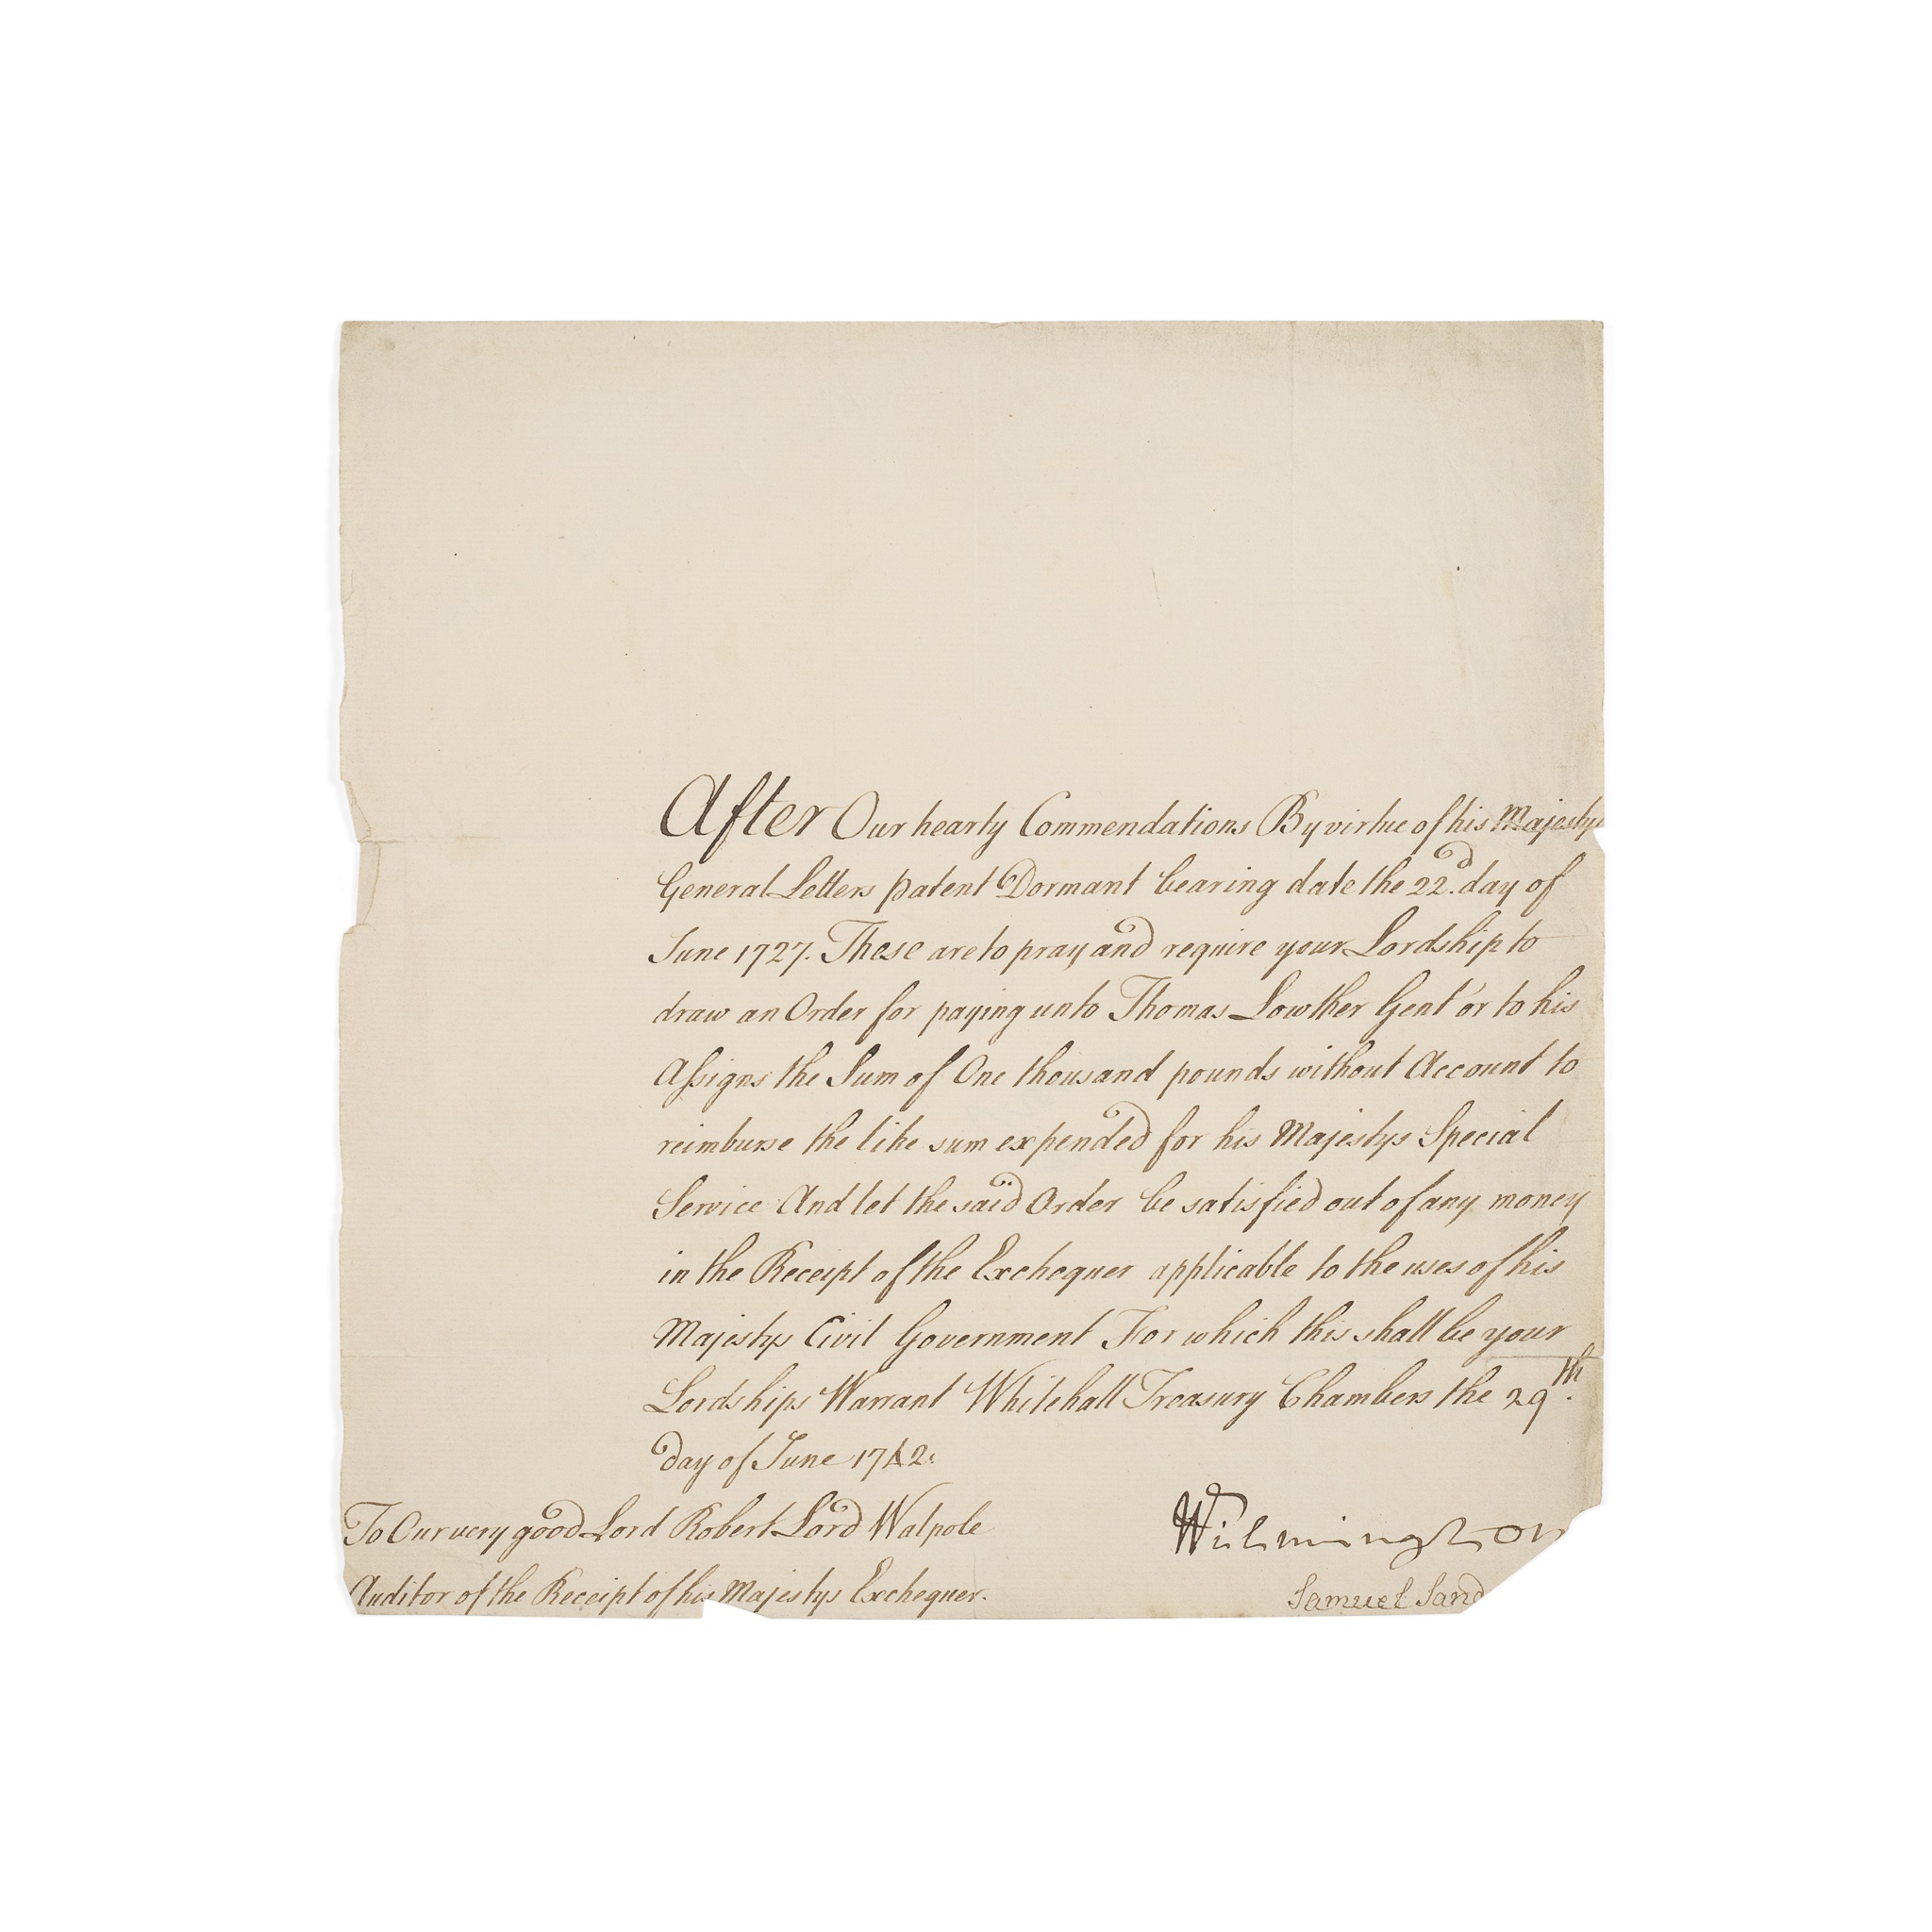 After Our hearty Commendations By virtue of his Majestys
General Letters patent Dormant bearing date the 22d. day of
June 1727. These are to pray and require your Lordship to
draw an Order for paying unto Thomas Lowther Gent' or to his
Assigns the Sum of One thousand pounds without Account to
reimburse the like sum expended for his Majestys Special
Service And let the said Order be satisfied out of any money
in the Receipt of the Exchequer applicable to the uses of his
Majestys Civil Government For which this shall be your
Lordships Warrant Whitehall Treasury Chambers the 29th.
day of June 1742.
To Our very good Lord Robert Lord Walpole
Auditor of the Receipt of his Majestys Exchequer.
Wilmington
Samuel Sand